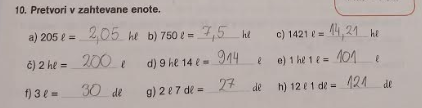 10. Pretvori v zahtevane enote.
a) 205 ℓ = 2,05 hℓ b) 750 ℓ = 7,5 hℓ c) 1421 ℓ = 14,21 hℓ
č) 2 hℓ = 200 ℓ d) 9 hℓ 14 ℓ = 914 ℓ e) 1 hℓ 1 ℓ = 101 ℓ
f) 3 ℓ = 30 dℓ g) 2 ℓ 7 dℓ = 27 dℓ h) 12 ℓ 1 dℓ = 121 dℓ